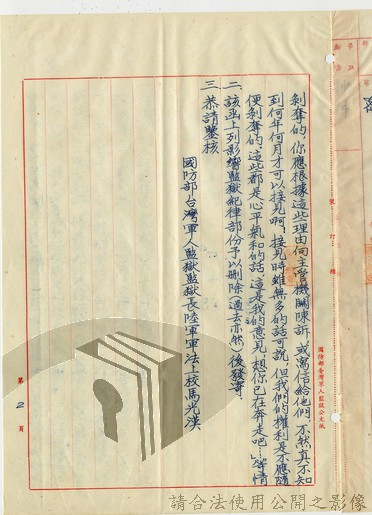 剝奪的,你應根據這些理由向主管機關陳訴,或寫信給他們,不然真不知
到何年何月才可以接見啊,接見時雖無多的話可說,但我們的權利是不應隨
便剝奪的,這些都是心平氣和的話,這是我的意見,想你已在奔走吧…」等情
二、該函上列影響監獄紀律部份予以刪除(過去亦然)後發寄。
三、恭請鑒核
國防部台灣軍人監獄監獄長陸軍軍法上校馬光漢
國防部臺灣軍人監獄公文紙
第2頁
請合法使用公開之影像